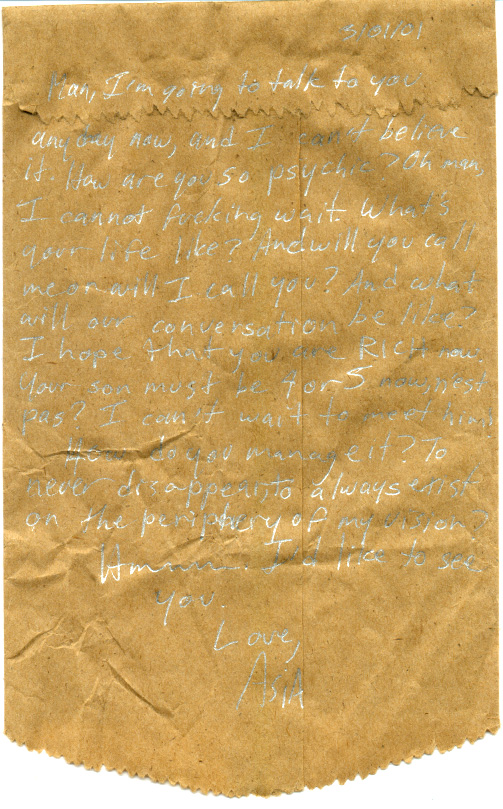 3/31/01
Man, I'm going to talk to you
anyday now, and I can't believe
it. How are you so psychic? Oh man,
I cannot fucking wait. What's
your life like? And will you call
me or will I call you? And what
will our conversation be like?
I hope that you are RICH now.
Your son must be 4 or 5 now, nest
pas? I can't wait to meet him!
How do you manage it? To
never disappear, to always exist
on the periphery of my vision?
Hmmm. I'd like to see
you.
Love,
ASIA